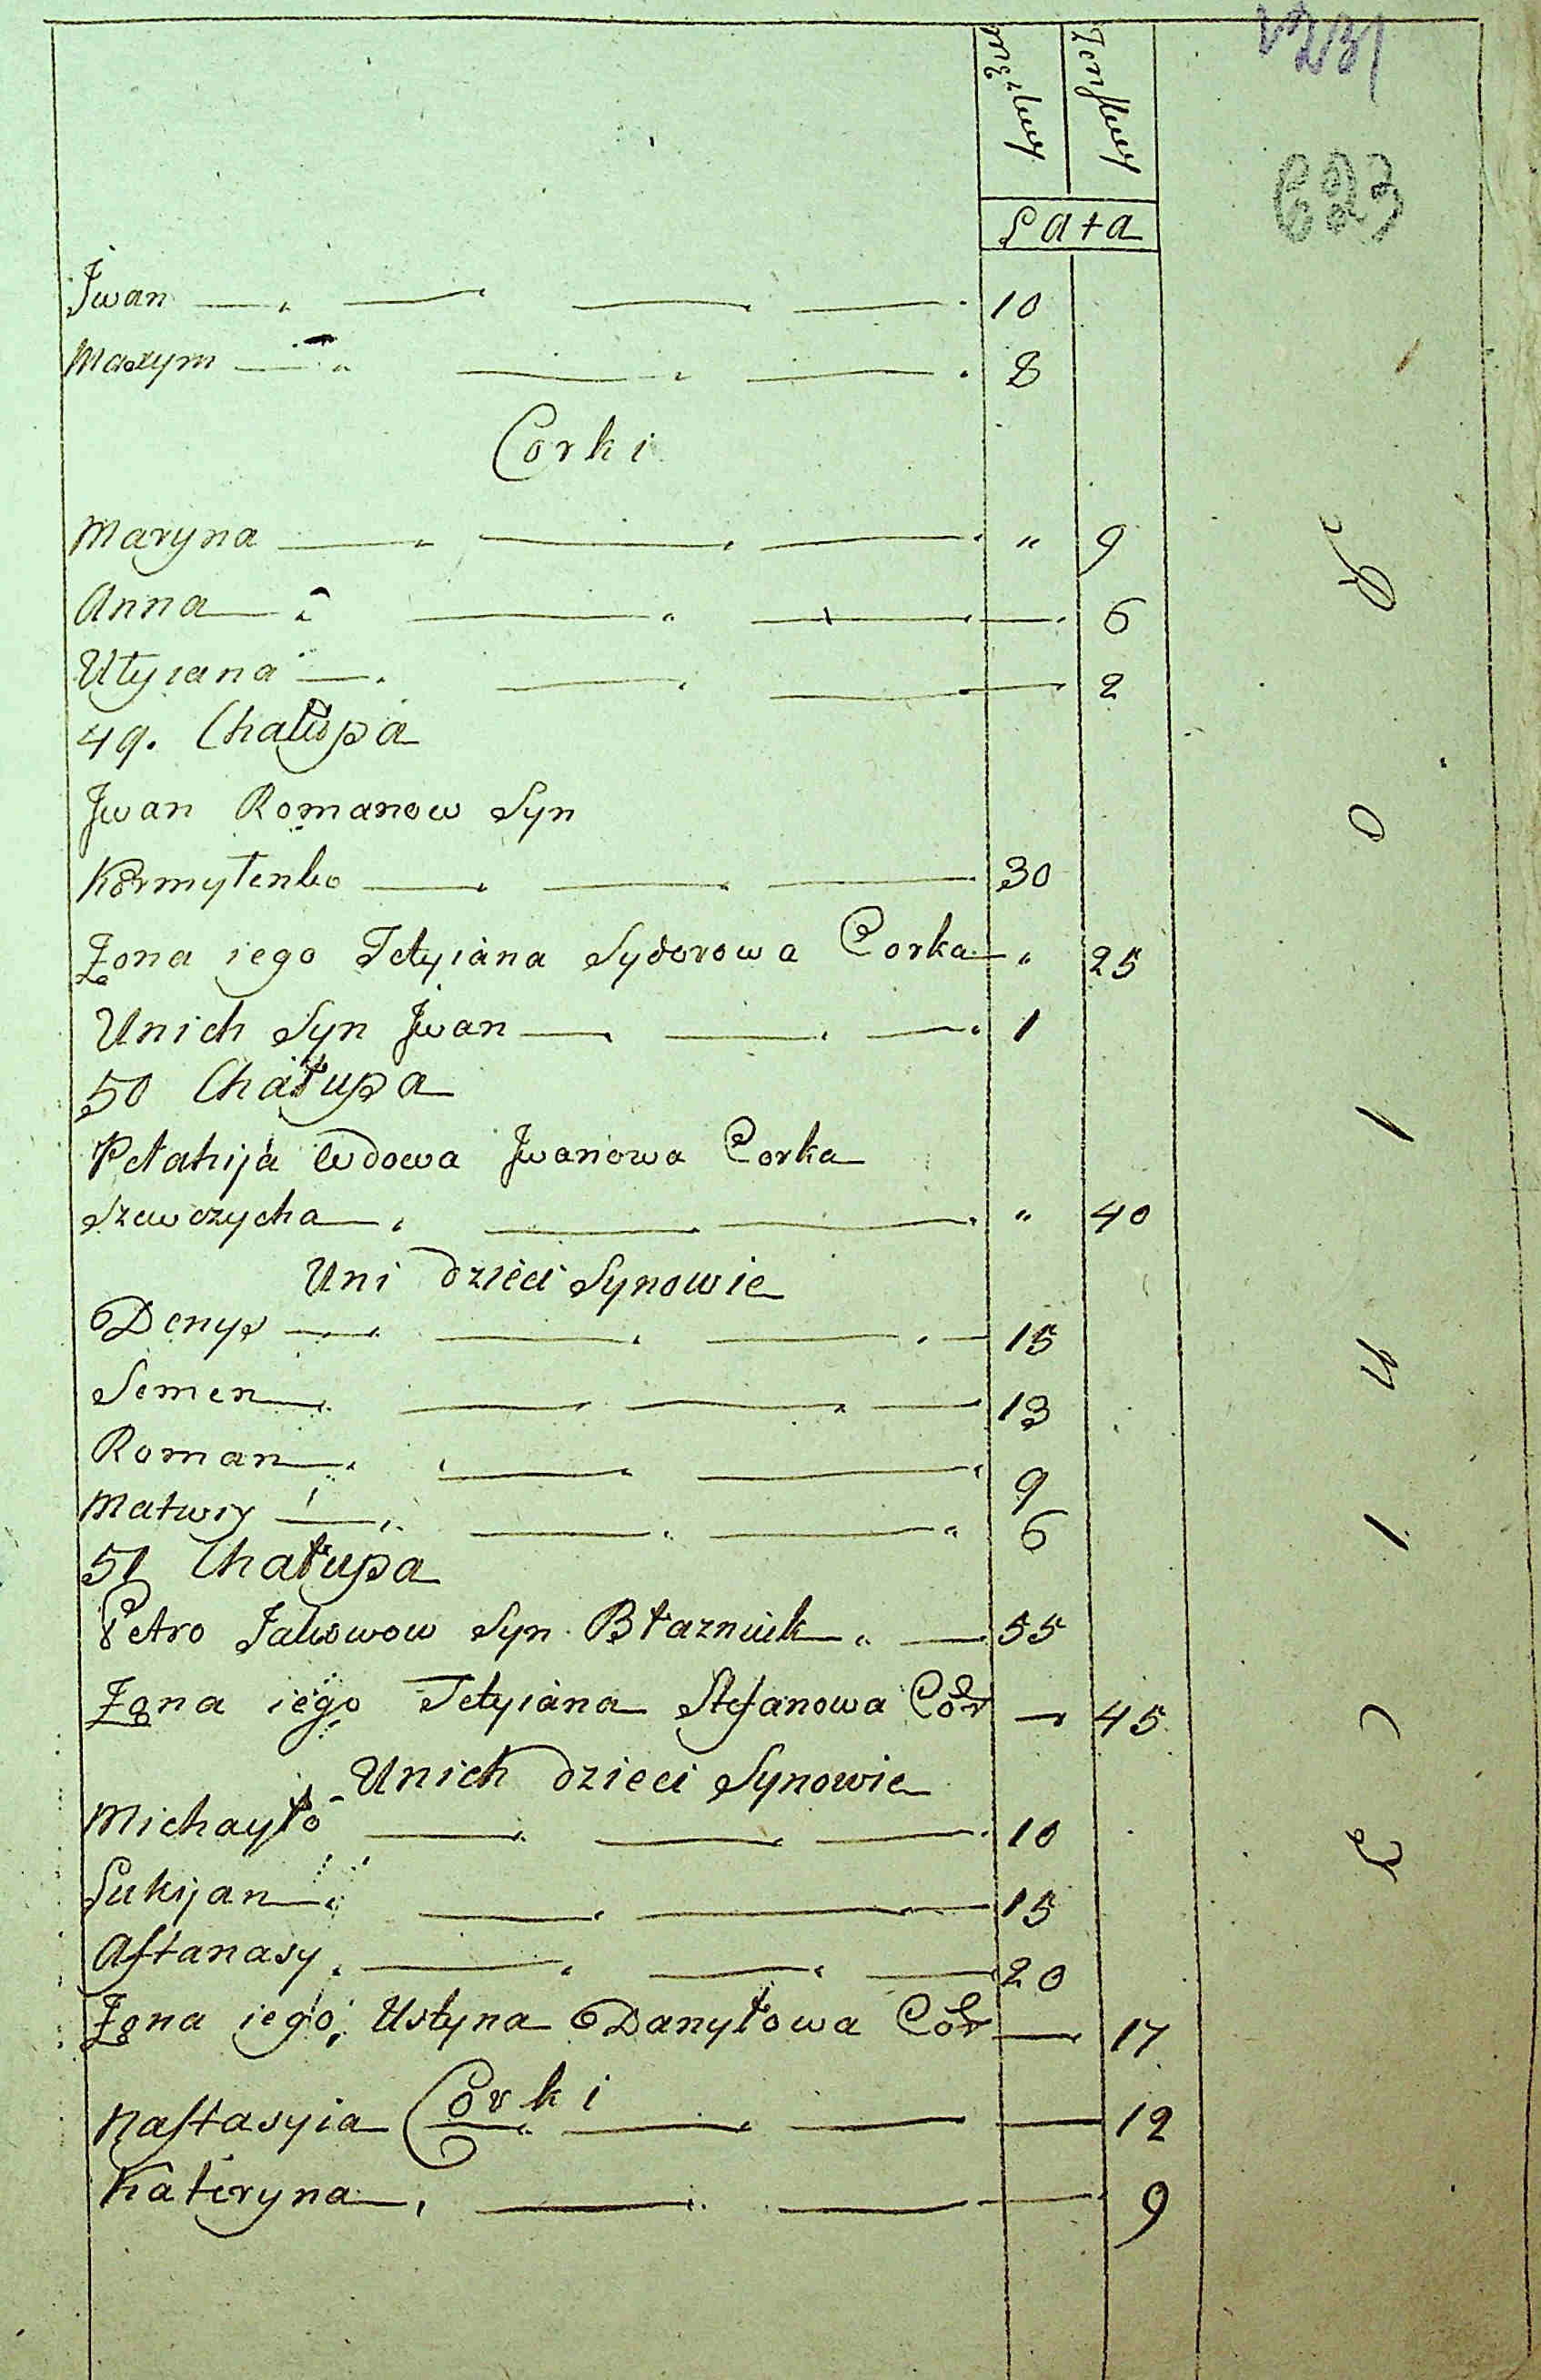 1231
623
Męzkey Żenskey
Lata
Jwan 10
Maxym 8
Corki
Maryna " 9
Anna 6
Utyiana 2
49. Chałupa
Jwan Romanow Syn
Kormytenko 30
Żona iego Tetyiana Sydorowa Corka " 25
Unich Syn Jwan 1
50 Chałupa
Pełahija wdowa Jwanowa Corka
Szewczycha " 40
Uni dzieci Synowie
Denys 15
Semen 13
Roman 9
Matwiy 6
51 Chałupa
Petro Jakowow Syn Błazniuk 55
Żona iego Tetyiana Stefanowa Cór 45
Unich dzieci Synowie
Michayło 10
Łukijan 15
Aftanasy 20
Żona iego Ustyna Danyłowa Cór 17
Corki
Nastasyia 12
Kateryna 9